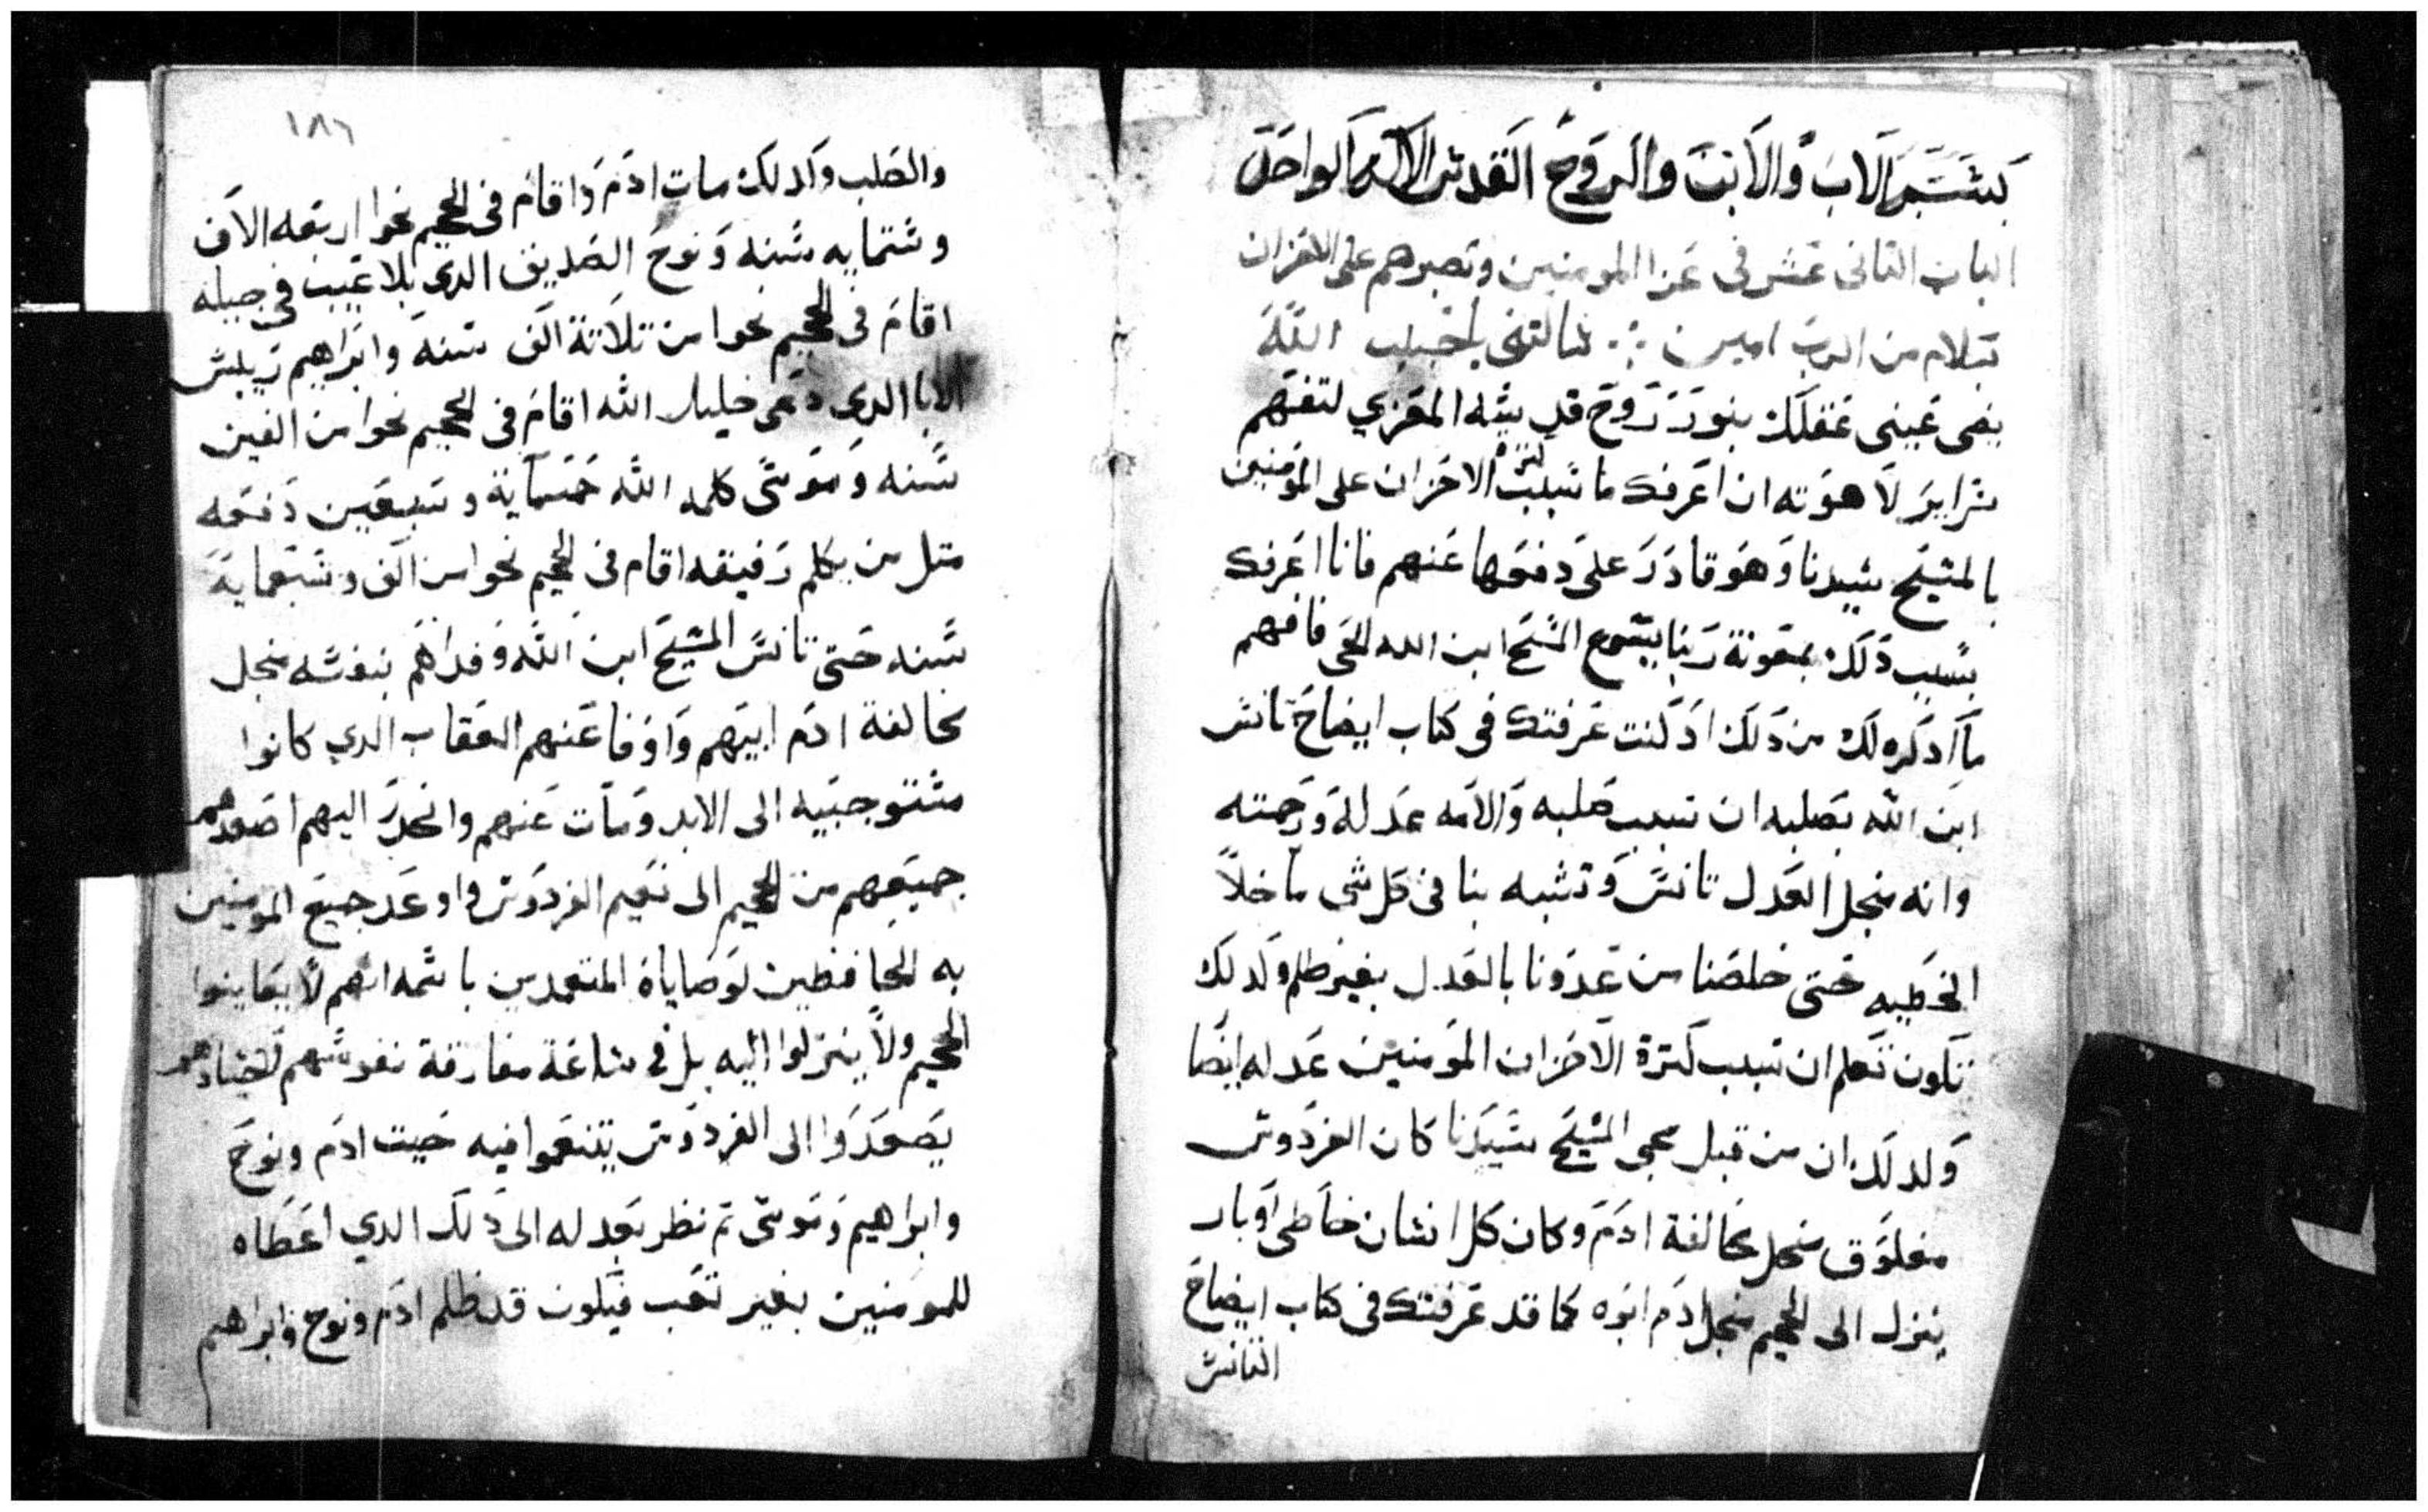 بسم الاب والابن والروح القدس الاله الواحد
الباب التانى عشر فى عزا المومنين وتصبرهم على الاحزان
بسلام من الرب امين سالتنى يا حبيب الله
يضى عينى عقلك بنور روح قدسه المعزي لتفهم
سراير لاهوته ان اعرفك ما سبب كترة الاحزان على المومنين
بالمسيح سيدنا وهو قادر على دفعها عنهم فانا اعرفك
بسبب دلك بمعونة ربنا يسوع المسيح ابن الله الحى فافهم
ما ادكره لك من دلك اد كنت عرفتك فى كتاب ايضاح تانس
ابن الله بصلبه ان سبب صلبه والامه عدله ورحمته
وانه منجل العدل تانس وتشبه بنا فى كل شى ما خلا
الخطيه حتى خلصنا من عدونا بالعدل بغير ظلم وكدلك
تكون تعلم ان سبب كترة الاحزان المومنين عدله ايضا
وكدلك ان من قبل مجى المسيح سيدنا كان الفردوس
مغلوق منجل مخالفة ادم وكان كل انسان خاطى او بار
ينزل الى الجحيم منجل ادم ابوه كما قد عرفتك فى كتاب ايضاح
التانس
١٨٦
والصلب وكدلك مات ادم واقام فى الجحيم نحوا اربعه الاف
وستمايه سنه ونوح الصديق الدي بلا عيب فى جيله
اقام فى الجحيم نحوا من تلاتة الف سنه وابراهيم رييس
الابا الدي دعى خليل الله اقام فى الجحيم نحوا من الفين
سنه وموسى كلمه الله خمسماية وسبعين دفعه
متل من يكلم رفيقه اقام فى الجحيم نحوا من الف وسبعماية
سنه حتى تانس المسيح ابن الله وفداهم بنفسه منجل
مخالفة ادم ابيهم واوفا عنهم العقاب الدي كانوا
مستوجبيه الى الابد ومات عنهم وانحدر اليهم اصعدهم
جميعهم من الجحيم الى نعيم الفردوس واوعد جميع المومنين
به الحافظين لوصاياه المتعمدين باسمه انهم لا يعاينوا
الجحيم ولا ينزلوا اليه بل فى ساعة مفارقة نفوسهم لاجسادهم
يصعدوا الى الفردوس يتنعموا فيه حيت ادم ونوح
وابراهيم وموسى تم نظر بعدله الى دلك الدي اعطاه
للمومنين بغير تعب فيكون قد ظلم ادم ونوح وابراهيم